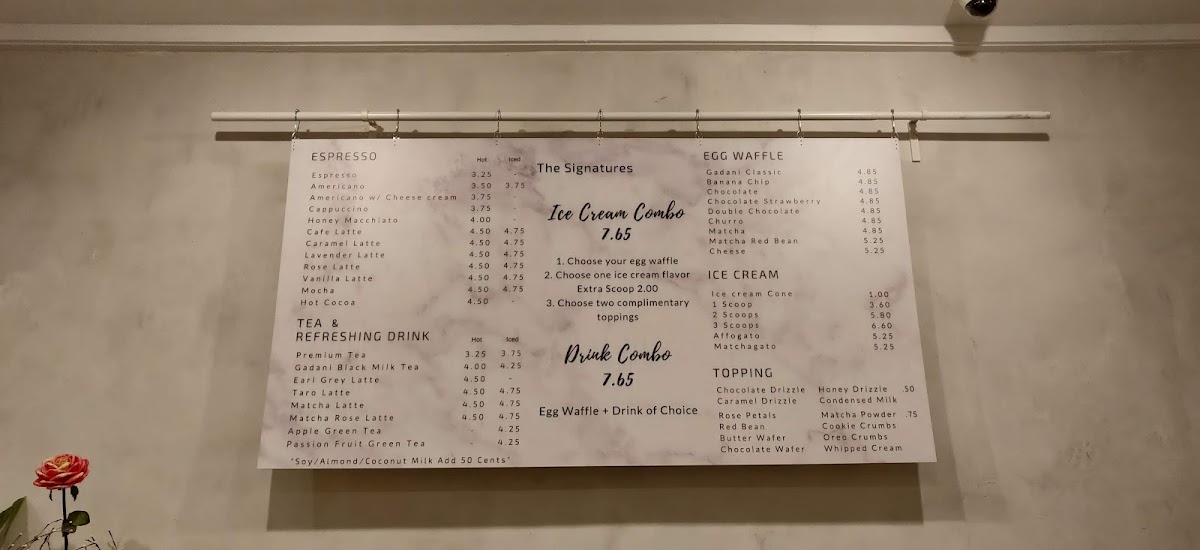 ESPRESSO Hot Iced
Espresso 3.25 -
Americano 3.50 3.75
Americano w/ Cheese cream 3.75 -
Cappuccino 3.75 -
Honey Macchiato 4.00 -
Cafe Latte 4.50 4.75
Caramel Latte 4.50 4.75
Lavender Latte 4.50 4.75
Rose Latte 4.50 4.75
Vanilla Latte 4.50 4.75
Mocha 4.50 4.75
Hot Cocoa 4.50 -
TEA &
REFRESHING DRINK Hot Iced
Premium Tea 3.25 3.75
Gadani Black Milk Tea 4.00 4.25
Earl Grey Latte 4.50 -
Taro Latte 4.50 4.75
Matcha Latte 4.50 4.75
Matcha Rose Latte 4.50 4.75
Apple Green Tea - 4.25
Passion Fruit Green Tea - 4.25
"Soy/Almond/Coconut Milk Add 50 Cents"
The Signatures
Ice Cream Combo
7.65
1. Choose your egg waffle
2. Choose one ice cream flavor
Extra Scoop 2.00
3. Choose two complimentary
toppings
Drink Combo
7.65
Egg Waffle + Drink of Choice
EGG WAFFLE
Gadani Classic 4.85
Banana Chip 4.85
Chocolate 4.85
Chocolate Strawberry 4.85
Double Chocolate 4.85
Churro 4.85
Matcha 4.85
Matcha Red Bean 5.25
Cheese 5.25
ICE CREAM
Ice cream Cone 1.00
1 Scoop 3.60
2 Scoops 5.80
3 Scoops 6.60
Affogato 5.25
Matchagato 5.25
TOPPING
Chocolate Drizzle Honey Drizzle .50
Caramel Drizzle Condensed Milk
Rose Petals Matcha Powder .75
Red Bean Cookie Crumbs
Butter Wafer Oreo Crumbs
Chocolate Wafer Whipped Cream